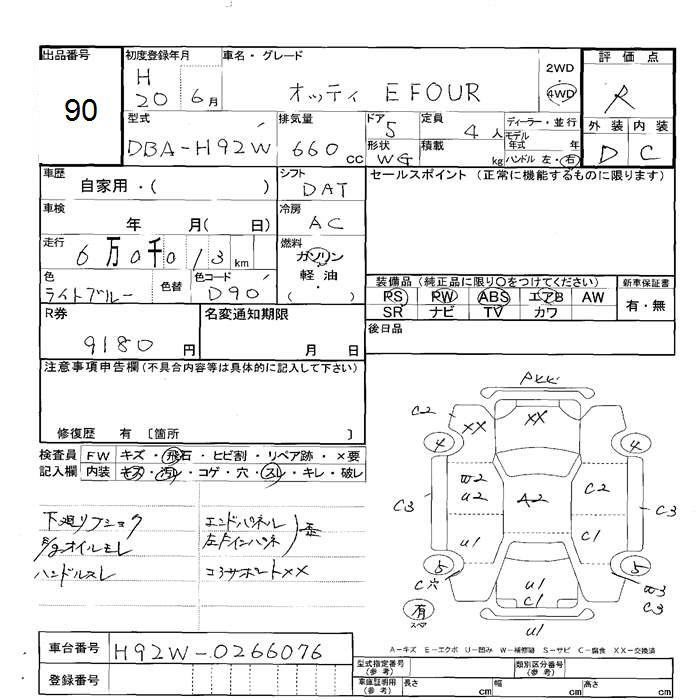 出品番号 初度登録年月 車名・グレード 評価点
90 H 20 6月 オッティ E FOUR 2WD 4WD R
型式 排気量 ドア 定員 ディーラー・並行 外装 内装
DBA-H92W 660cc 5 4人 モデル年式 年 D C
形状 WG 積載 kg ハンドル 左・右
車歴 シフト セールスポイント (正常に機能するものに限ります)
自家用・( ) DAT
車検 冷房
年 月( 日) AC
走行 燃料
6万0千013km ガソリン・軽油・( )
色 色替 色コード 装備品 (純正品に限り○をつけてください) 新車保証書
ライトブルー D90 PS PW ABS エアB AW 有・無
SR ナビ TV カワ
R券 名変通知期限 後日品
9180円 月 日
注意事項申告欄 (不具合内容等は具体的に記入して下さい)
修復歴 有 〔箇所 〕
検査員 FW キズ・飛石・ヒビ割・リペア跡・×要
記入欄 内装 キズ・汚レ・コゲ・穴・スレ・キレ・破レ
エンドパネル
E/gオイルモレ 左Fインパネ
ハンドルスレ コアサポートXX
C2 XX XX
4 4
W2 U2 A2 C2
C3 C3
U1 C1
5 5
C穴 U1 C1 W3 C3
有 スペア U1
A-キズ E-エクボ U-凹み W-補修跡 S-サビ C-腐食 XX-交換済
車台番号 H92W-0266076
登録番号
型式指定番号 (参考) 類別区分番号 (参考)
車庫証明用 (参考) 長さ cm 幅 cm 高さ cm